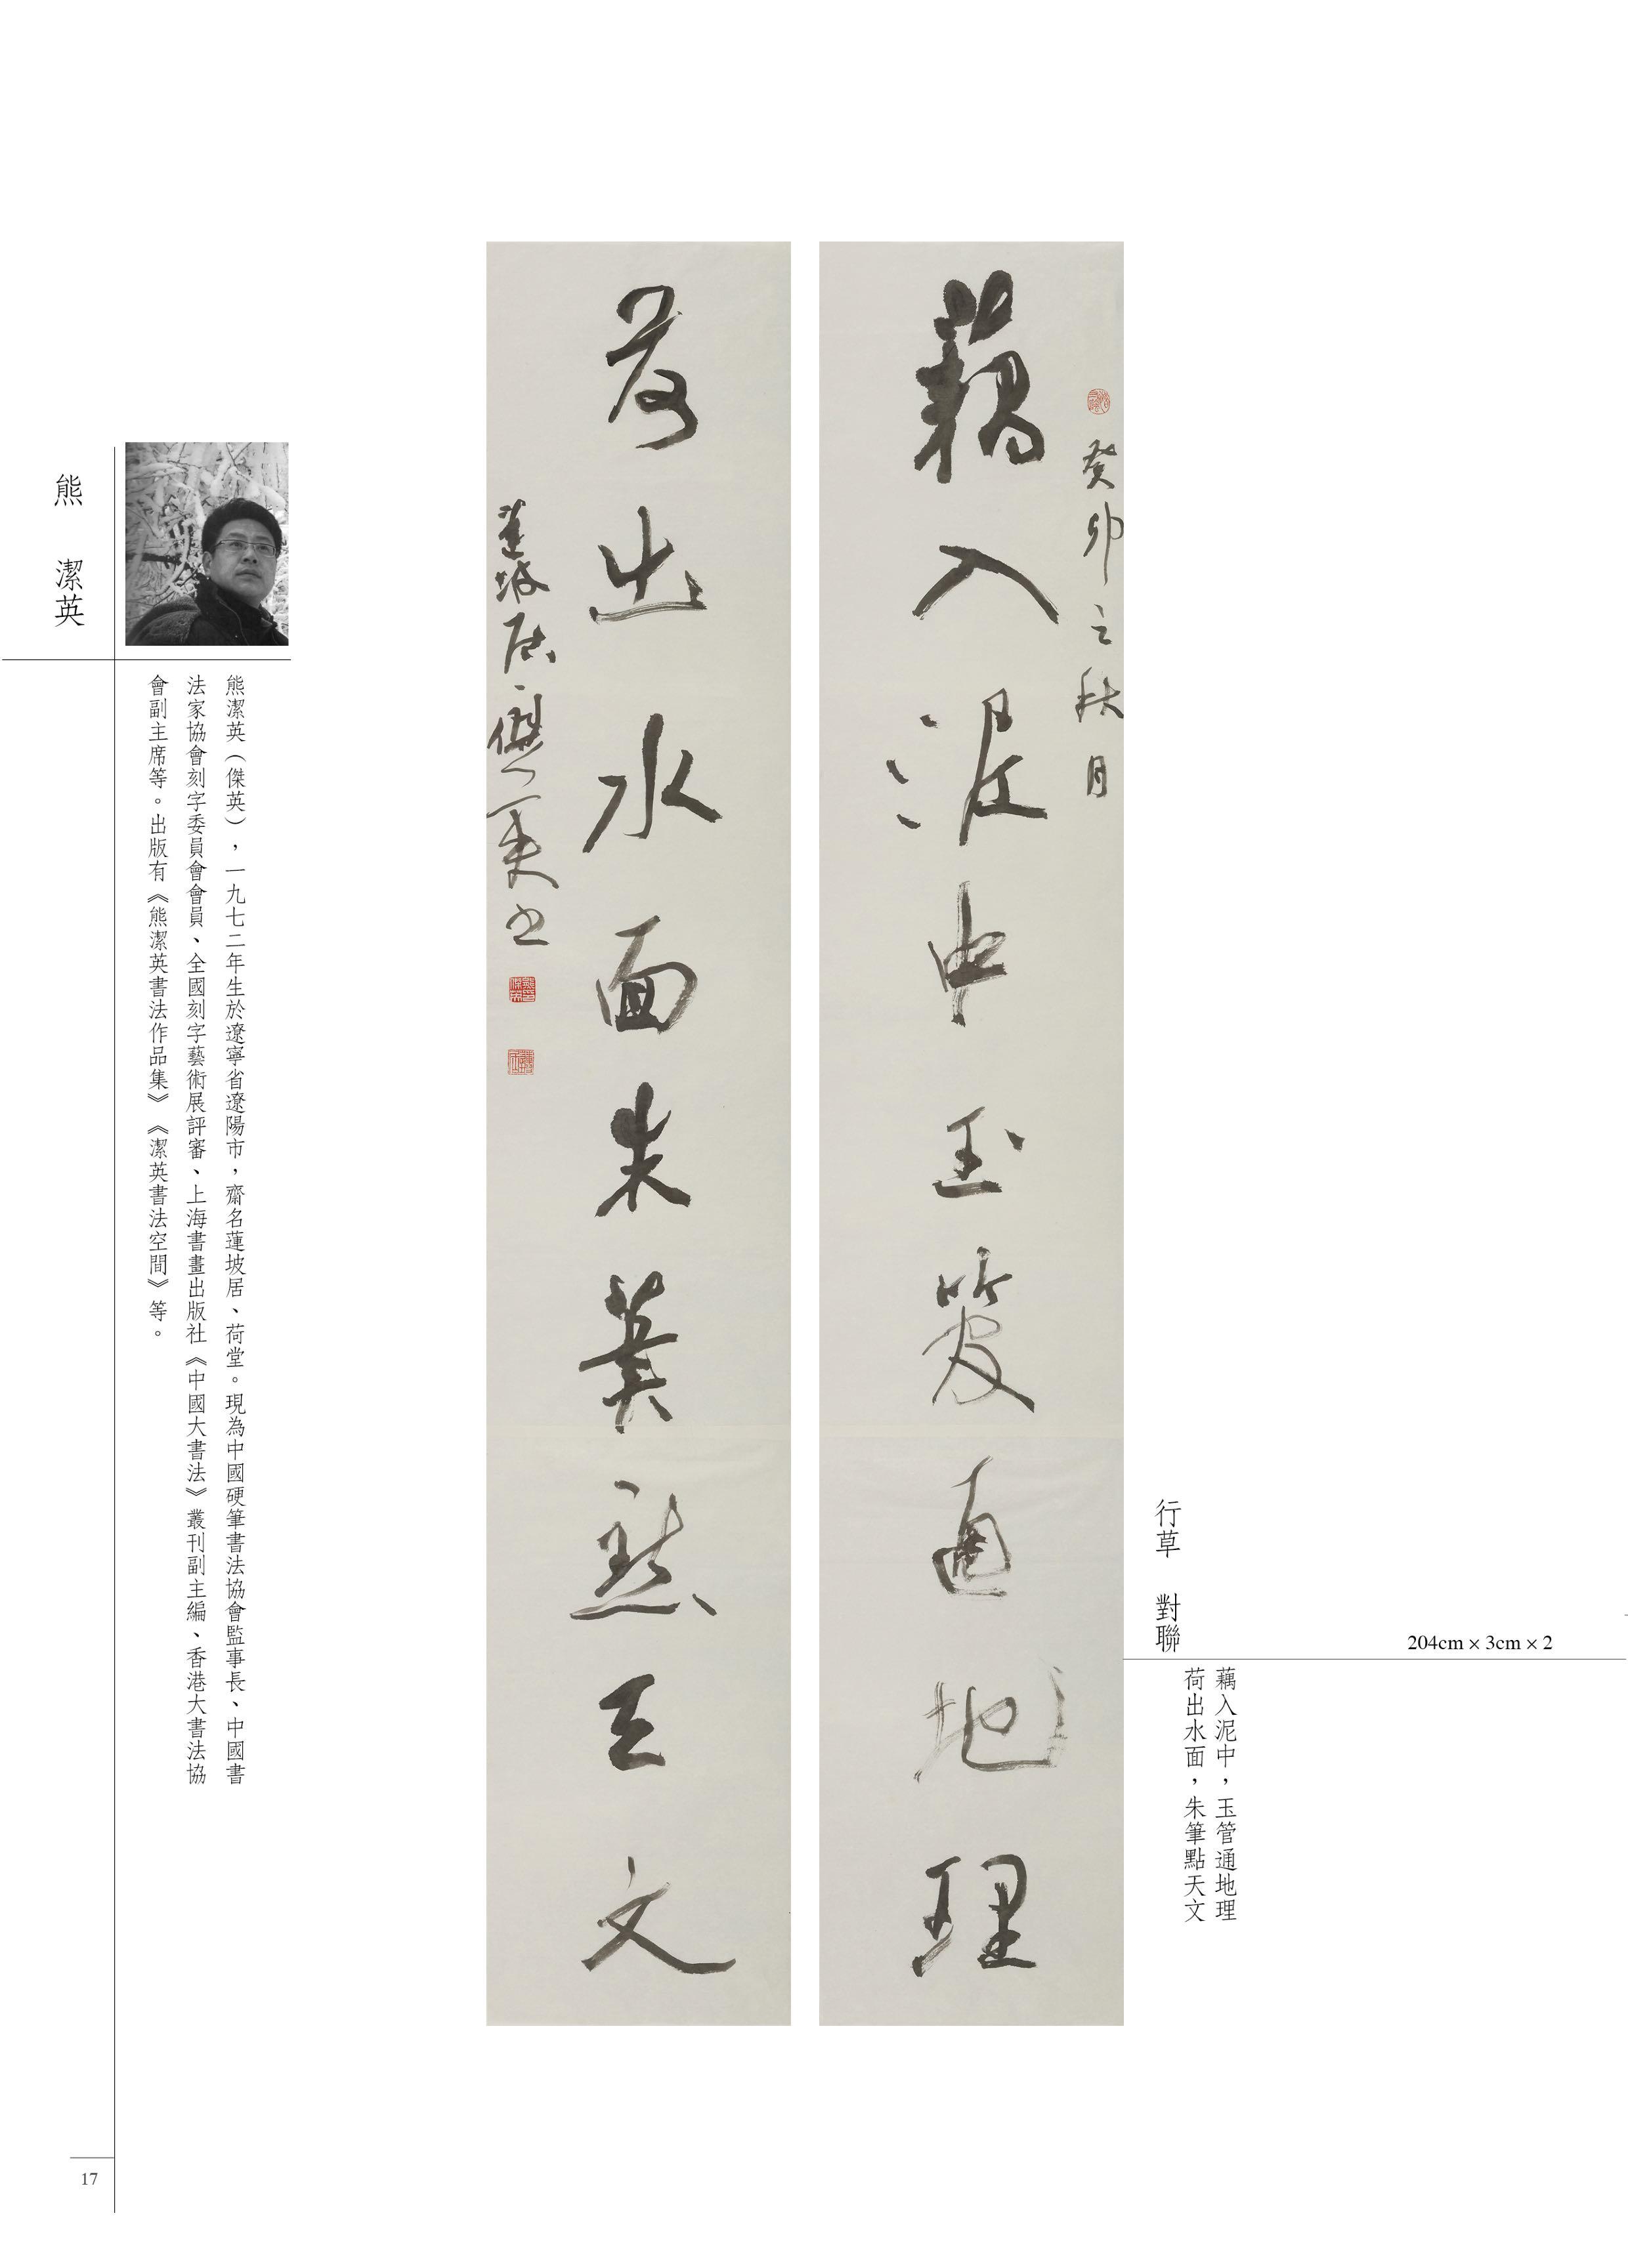 行草　對聯
204cm × 3cm × 2
藕入泥中，玉管通地理
荷出水面，朱筆點天文
癸卯之秋月
藕入泥中玉管通地理
荷出水面朱筆點天文
蓮坡居傑英書
熊　潔英
熊潔英（傑英），一九七二年生於遼寧省遼陽市，齋名蓮坡居、荷堂。現為中國硬筆書法協會監事長、中國書
法家協會刻字委員會會員、全國刻字藝術展評審、上海書畫出版社《中國大書法》叢刊副主編、香港大書法協
會副主席等。出版有《熊潔英書法作品集》《潔英書法空間》等。
17